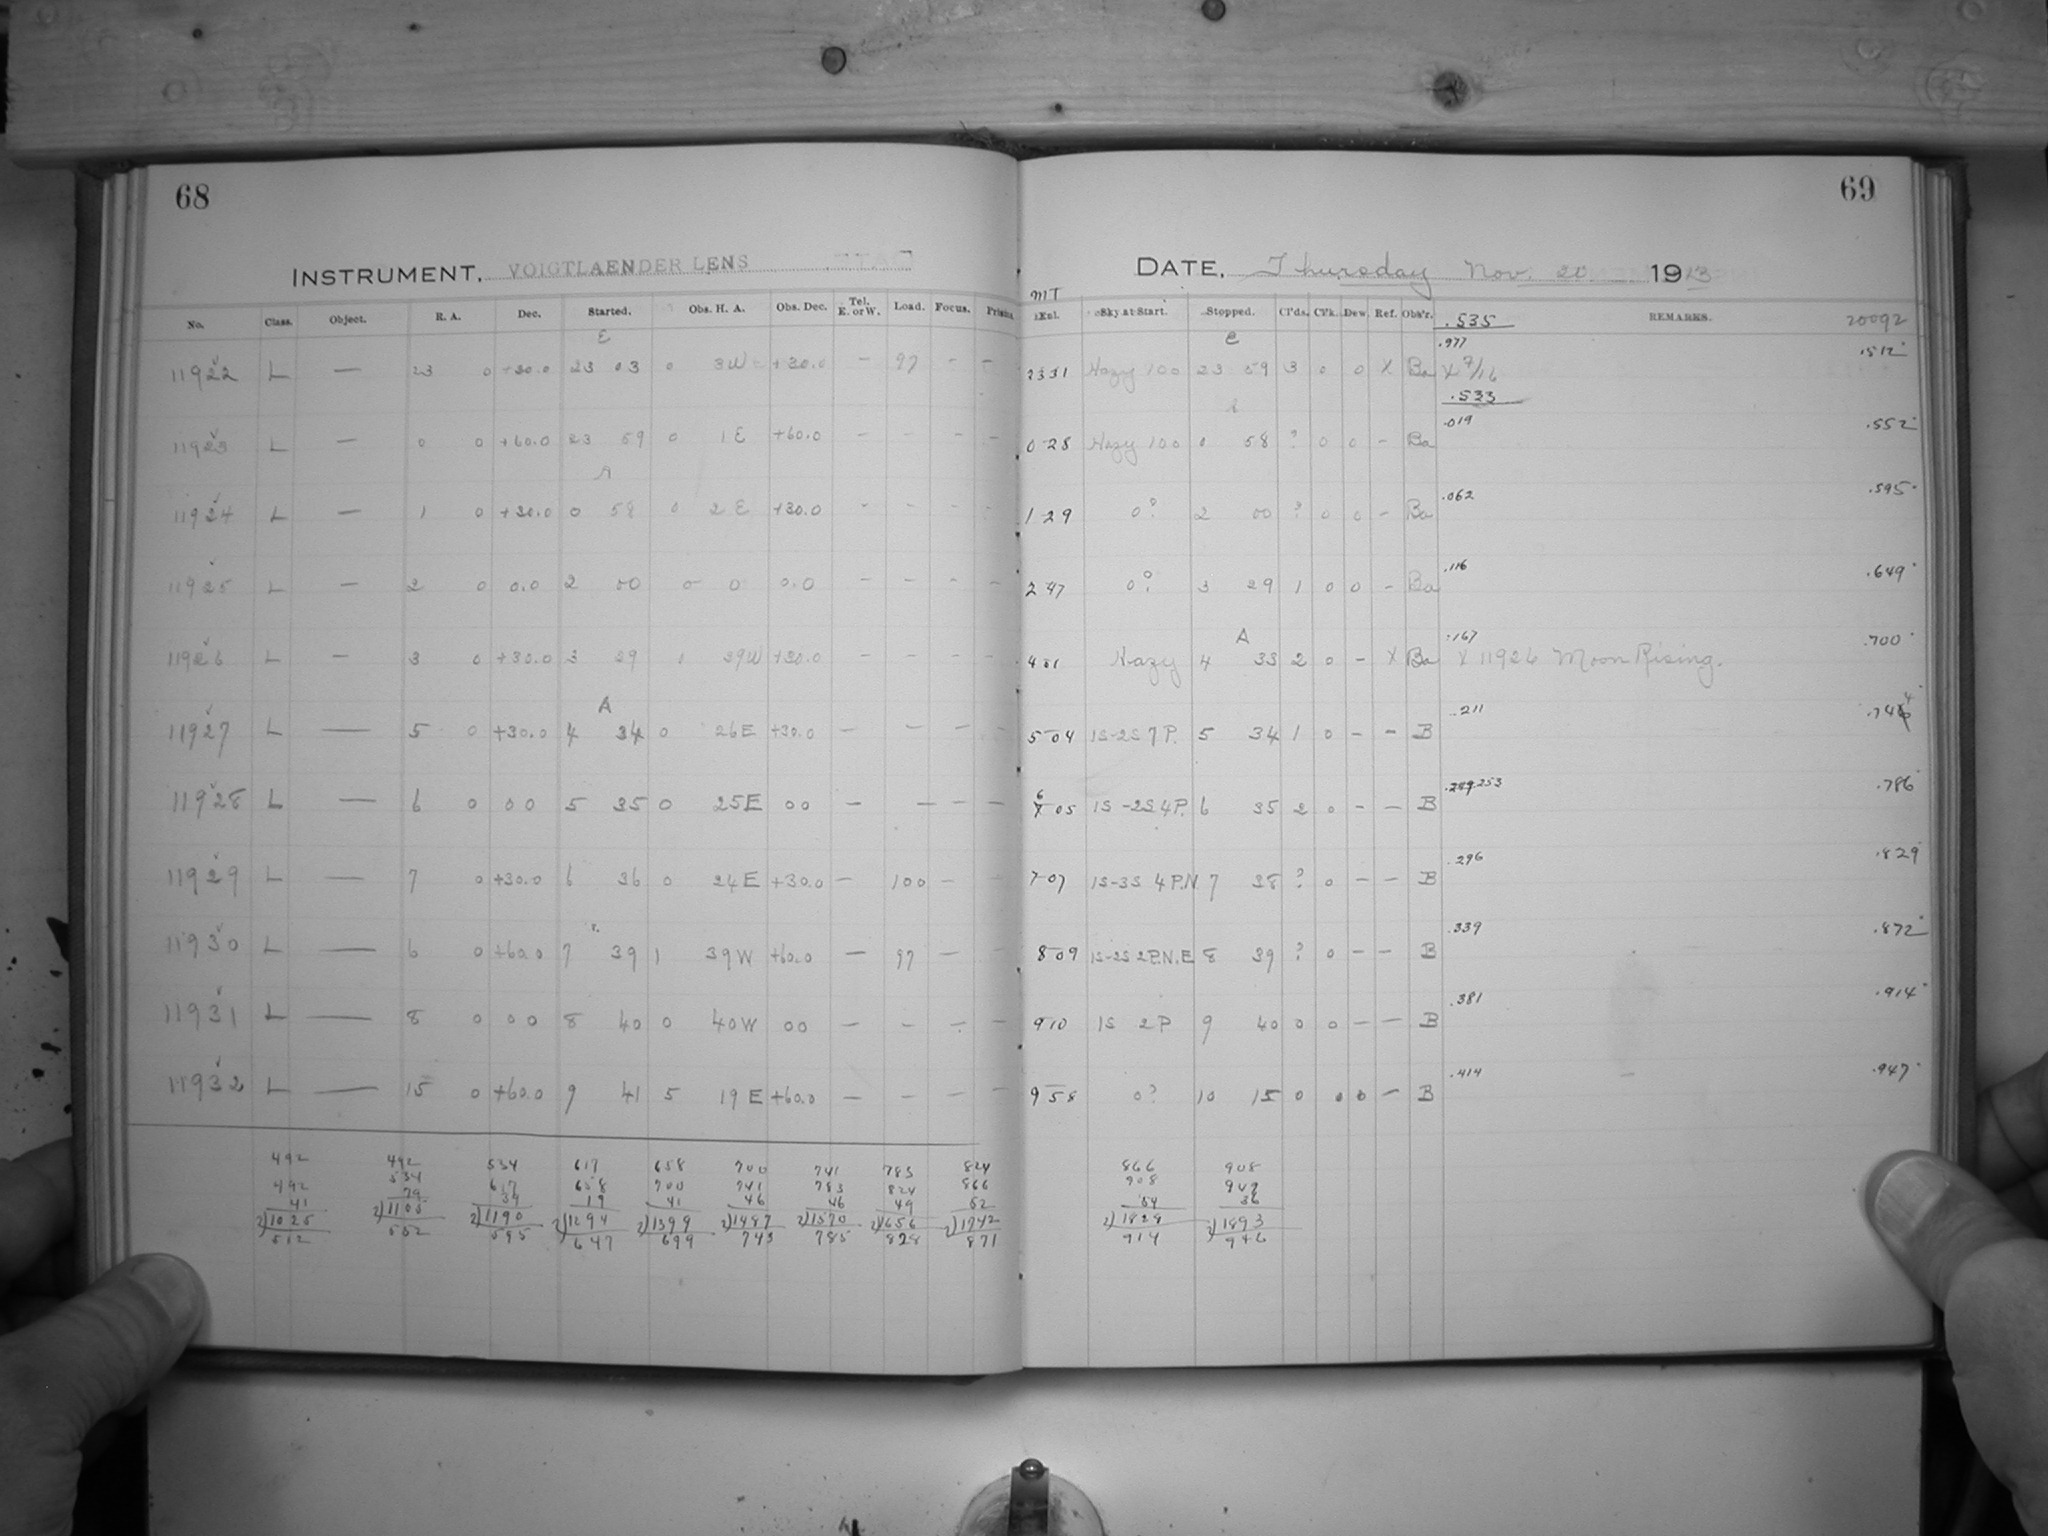 68
69
INSTRUMENT, VOIGTLAENDER LENS
DATE, Thursday Nov. 20 1913
No. Class. Object. R. A. Dec. Started. Obs. H. A. Obs. Dec. Tel. E. or W. Load. Focus. Prisms. MT Exp. Sky at Start. Stopped. Cl'ds. Cl'k. Dew Ref. Obs'r. .535 REMARKS. 20092
E e .977 .512
11922 L — 23 0 +30.0 23 03 0 3W +30.0 — 97 - - 23 31 Hazy 100 23 59 3 0 0 X Ba X 7/16
.533
.019 .552
11923 L — 0 0 +60.0 23 59 0 1E +60.0 - - - - 0 28 Hazy 100 0 58 ? 0 0 - Ba
A .062 .595
11924 L — 1 0 +30.0 0 58 0 2E +30.0 - - - - 1 29 0? 2 00 ? 0 0 - Ba
.116 .649
11925 L — 2 0 0.0 2 00 0 0 0.0 - - - - 2 47 0? 3 29 1 0 0 - Ba
A .167 .700
11926 L — 3 0 +30.0 3 29 0 29W +30.0 - - - - 4 01 Hazy 4 33 2 0 - X Ba X 11926 Moon Rising.
A .211 4
11927 L — 5 0 +30.0 4 34 0 26E +30.0 — — — — 5 04 1S-2S 7P. 5 34 1 0 - - B
.253 .786
11928 L — 6 0 00 5 35 0 25E 00 — — — — 6 05 1S-2S 4P. 6 35 2 0 - - B
.296 .829
11929 L — 7 0 +30.0 6 36 0 24E +30.0 — 100 — - 7 07 1S-3S 4P.N 7 38 ? 0 - - B
.339 .872
11930 L — 6 0 +60.0 7 39 1 39W +60.0 — 97 — - 8 09 1S-2S 2P.N.E 8 39 ? 0 - - B
.381 .914
11931 L — 8 0 00 8 40 0 40W 00 — - — — 9 10 1S 2P 9 40 0 0 - - B
.414 .947
11932 L — 15 0 +60.0 9 41 5 19E +60.0 — — — — 9 58 0? 10 15 0 0 0 - B
492 492 534 617 658 700 741 783 824 866 908
492 534 617 658 700 741 783 824 866 908 949
41 79 39 19 41 46 46 49 52 54 36
2)1025 2)1105 2)1190 2)1294 2)1399 2)1487 2)1570 2)1656 2)1742 2)1828 2)1893
512 552 595 647 699 743 785 828 871 914 946